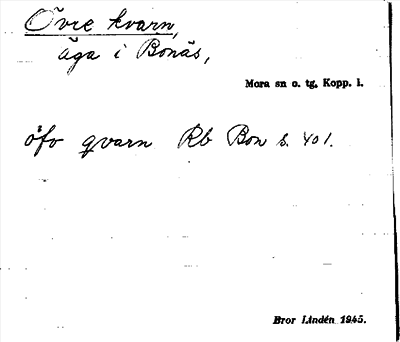 Övre kvarn,
äga i Bonäs,
Mora sn o. tg. Kopp. l.
öfv qvarn Rb Bon s. 401.
Bror Lindén 1945.